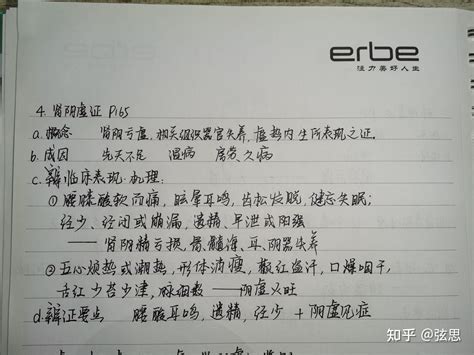 erbe
注力美好人生
4. 肾阴虚证 P165
a. 概念 肾阴亏虚,相关组织器官失养,虚热内生所表现之证.
b. 成因 先天不足 温病 房劳、久病
c. 临床表现·机理:
① 腰膝酸软而痛,眩晕耳鸣,齿松发脱,健忘失眠;
经少、经闭或崩漏,遗精、早泄或阳强
—— 肾阴精亏损,骨、髓海、耳、阴器失养
② 五心烦热或潮热,形体消瘦,颧红盗汗,口燥咽干,
舌红少苔少津,脉细数 —— 阴虚火旺
d. 辩证要点 腰酸耳鸣,遗精,经少 + 阴虚见症
知乎 @弦思